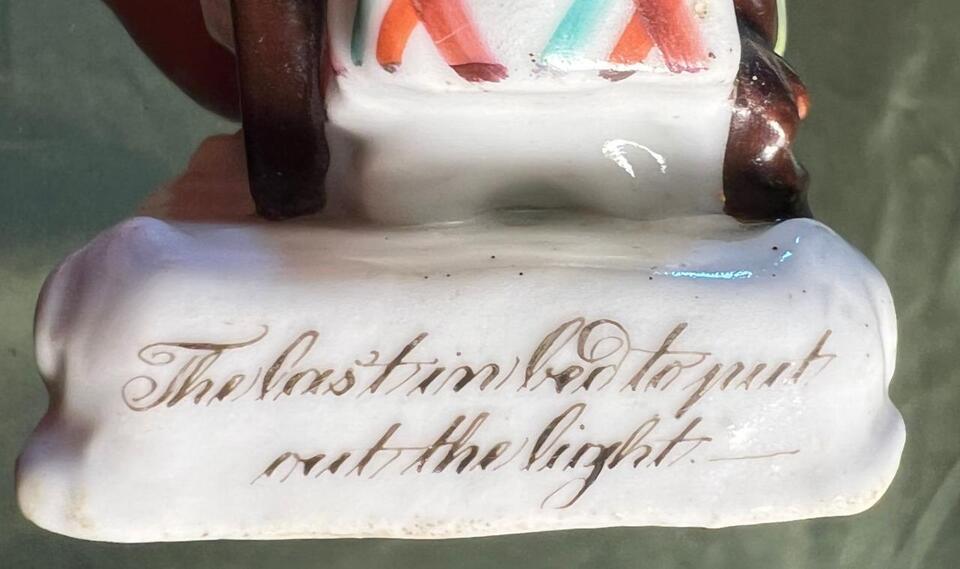 The last in bed to put
out the light.—